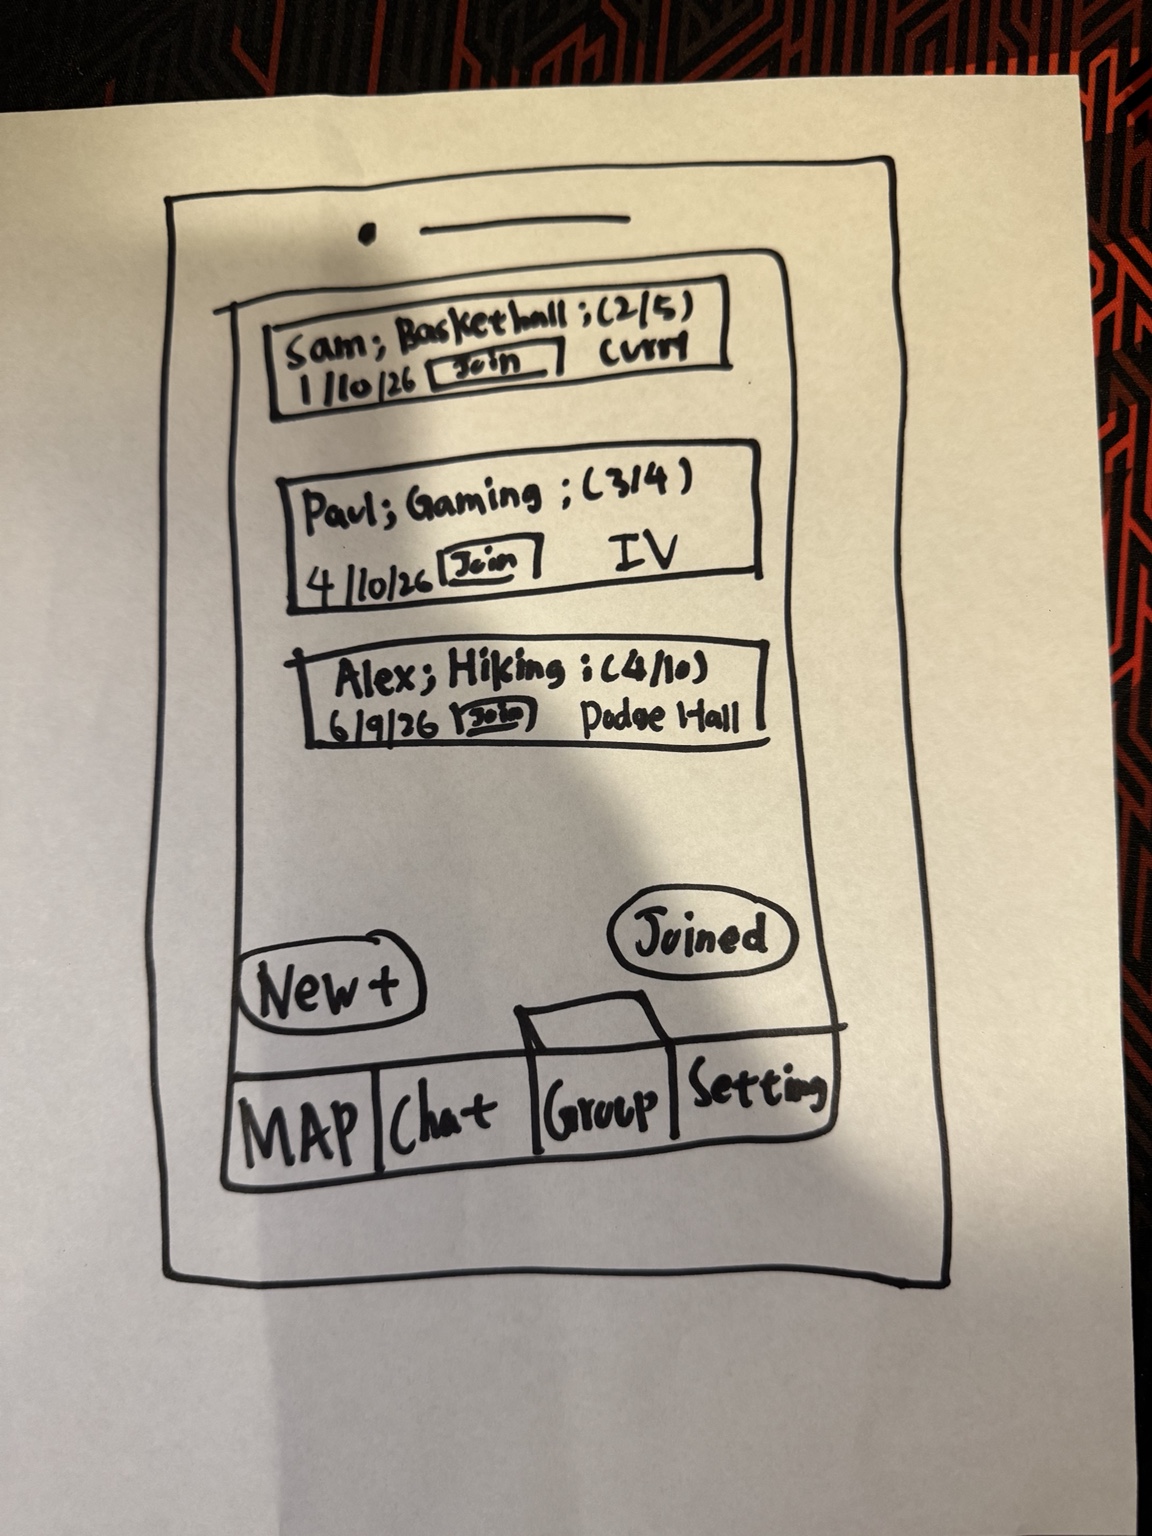 Sam; Basketball ; (2/5)
1/10/26 Join Curry
Paul; Gaming ; (3/4)
4/10/26 Join IV
Alex; Hiking ; (4/10)
6/9/26 Join Dodge Hall
Joined
New +
MAP Chat Group Setting